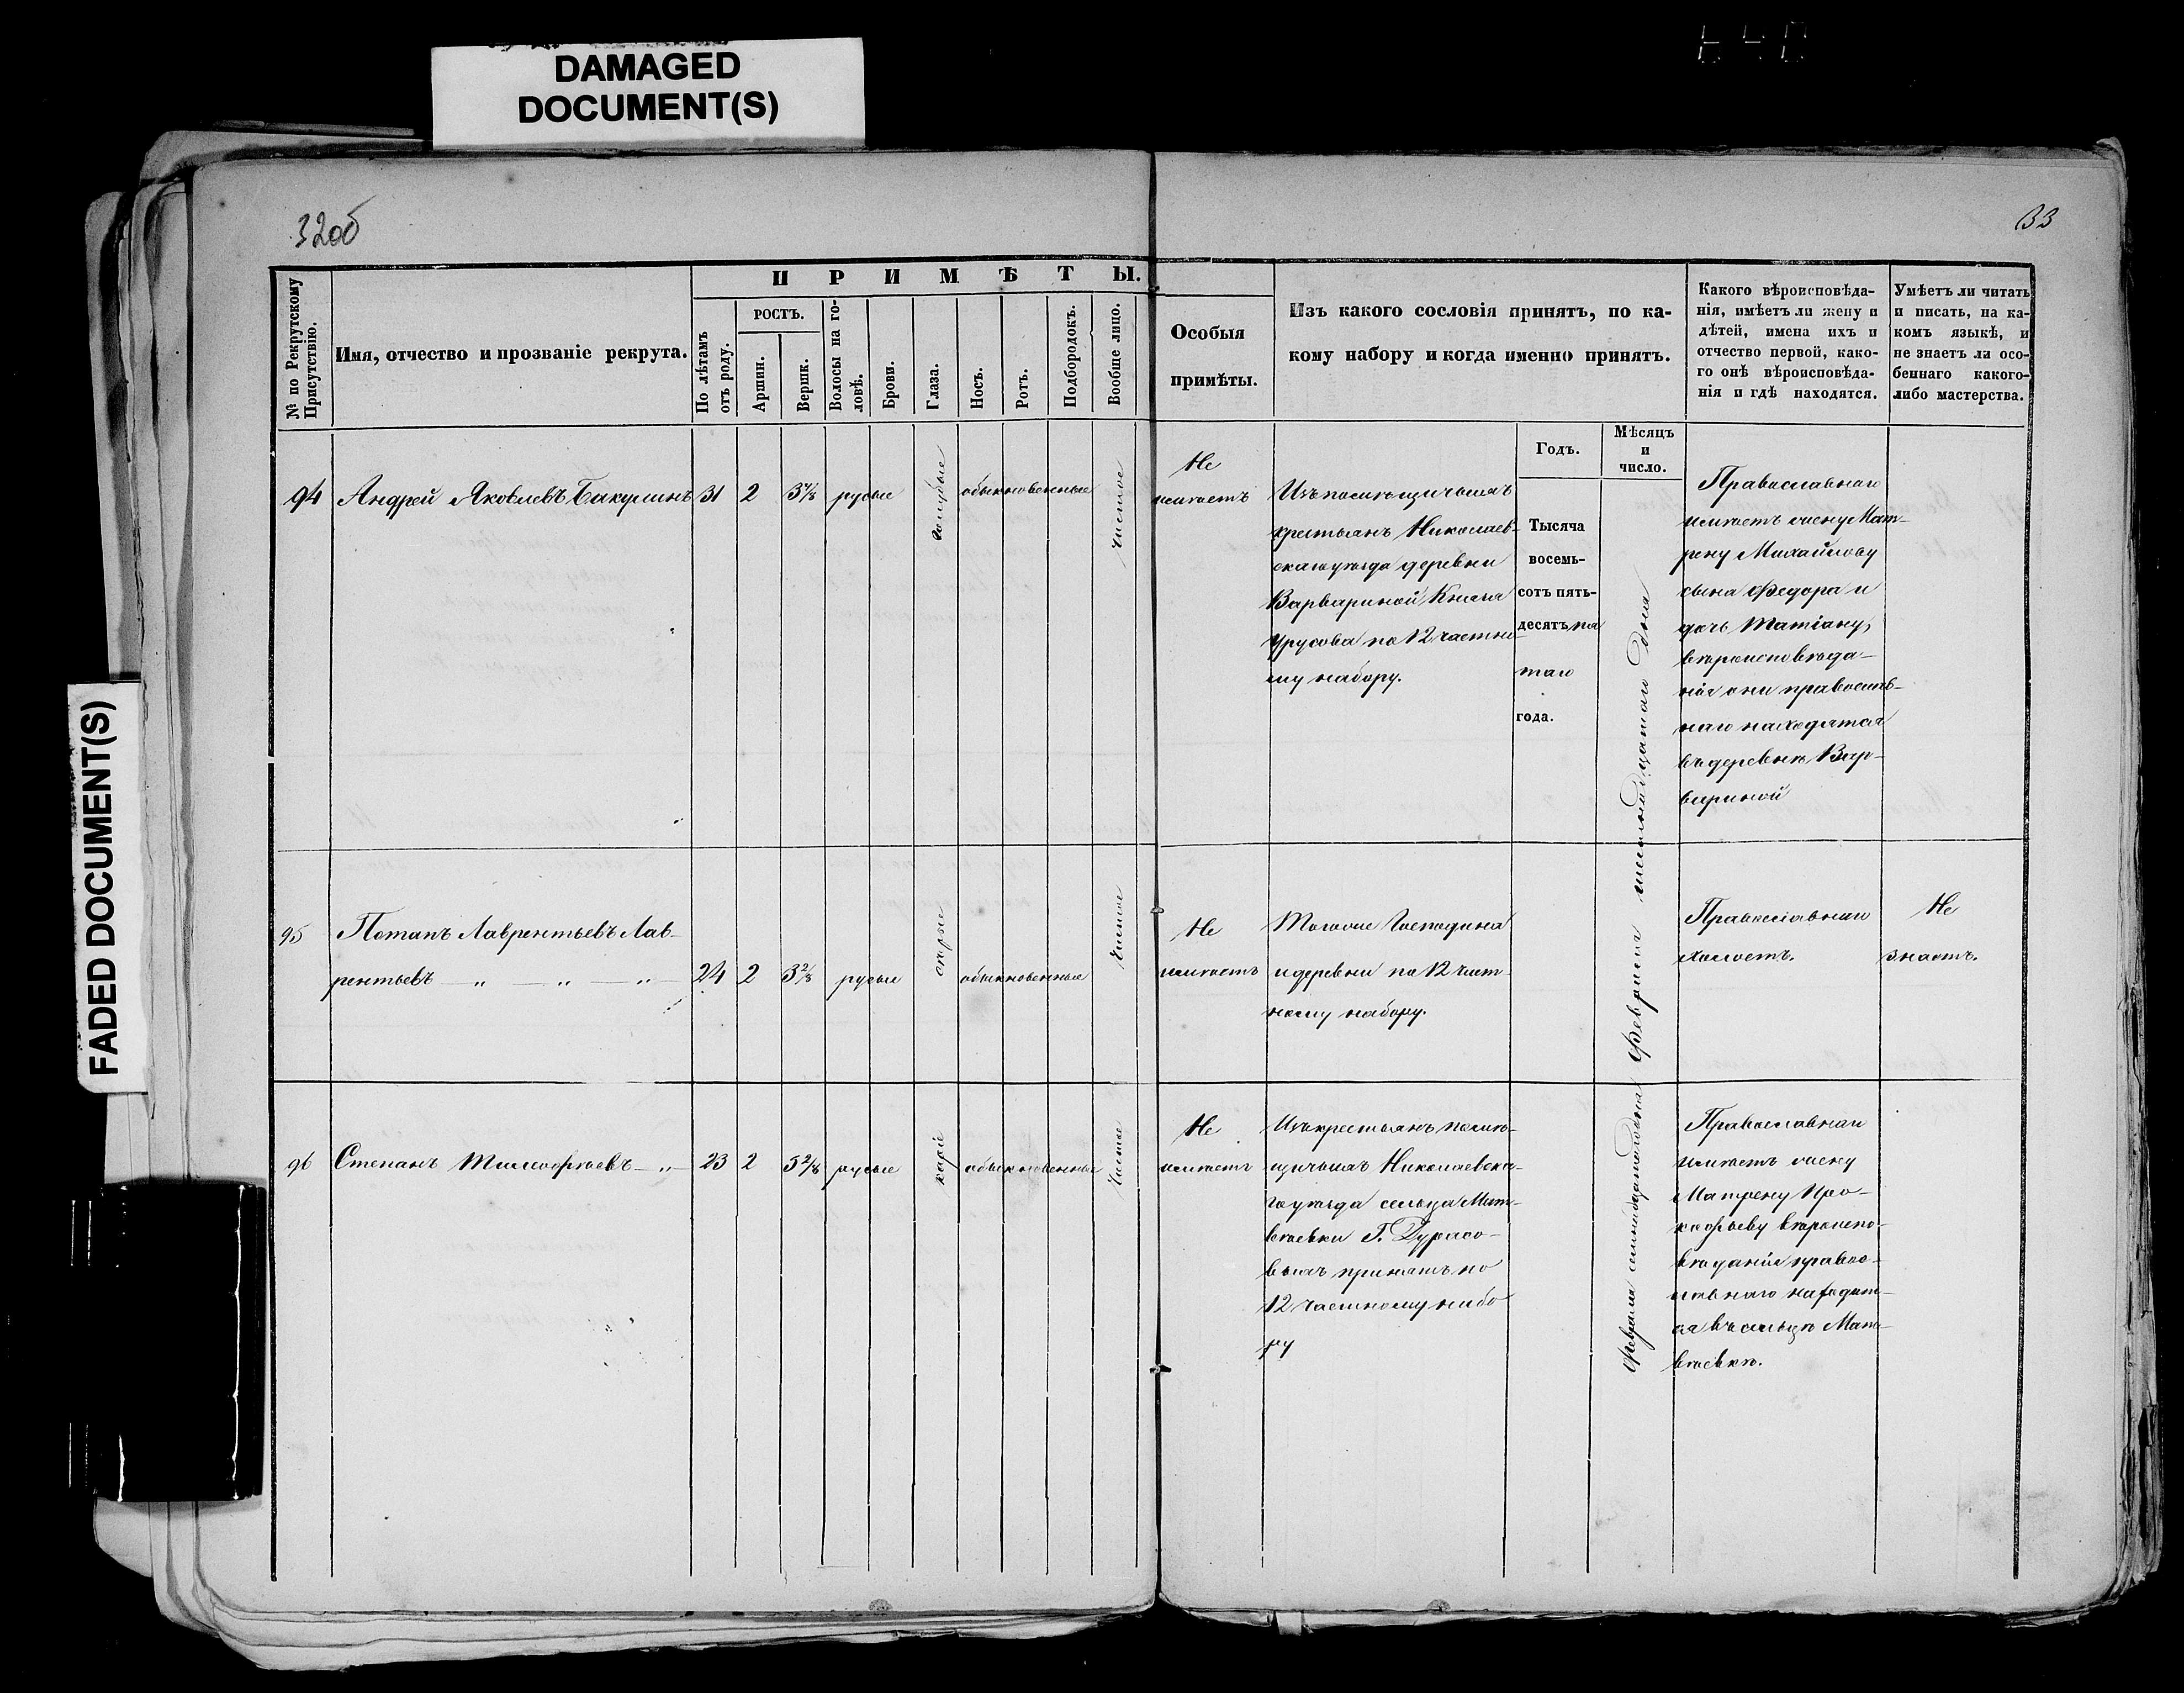 DAMAGED
DOCUMENT(S)
FADED DOCUMENT(S)
32об
33
№ по Рекрутскому
Присутствію.
Имя, отчество и прозваніе рекрута.
ПРИМѢТЫ.
По лѣтамъ
отъ роду.
РОСТЪ.
Аршин.
Вершк.
Волосы на го-
ловѣ.
Брови.
Глаза.
Носъ.
Ротъ.
Подбородокъ.
Вообще лицо.
Особыя
примѣты.
Изъ какого сословія принятъ, по ка-
кому набору и когда именно принятъ.
Какого вѣроисповѣда-
нія, имѣетъ ли жену и
дѣтей, имена ихъ и
отчество первой, како-
го онѣ вѣроисповѣда-
нія и гдѣ находятся.
Умѣетъ ли читать
и писать, на ка-
комъ языкѣ, и
не знаетъ ли осо-
беннаго какого-
либо мастерства.
Годъ.
Мѣсяцъ
и
число.
Тысяча
восемь-
сотъ пять-
десятъ пя
таго
года.
94 Андрей Яковлевъ Бакулинъ 31 2 3 4/8 русые голубые обыкновенные чистое
Не
имѣетъ
Изъ помѣщичьихъ
крестьянъ Николаев-
скаго уѣзда деревни
Варвариной Князя
Урусова по 12 частно-
му набору.
Православнаго
имѣетъ жену Мат-
рену Михайлову
сына Федора и
дочь Татіану,
вѣроисповѣда-
нія они правосла-
наго находятся
въ деревнѣ Вар-
вариной
Февраля шестнадцатаго дня
95 Потапъ Лаврентьевъ Лав-
рентьевъ — „ — „ — „ — 24 2 3 2/8 русые сѣрые обыкновенные чистое
Не
имѣетъ
Тогоже Господина
и деревни по 12 част
ному набору.
Православнаго
холостъ.
Не
знаетъ.
96 Степанъ Тимофѣевъ — „ — 23 2 5 2/8 русые каріе обыкновенные чистое
Не
имѣетъ
Изъ крестьянъ помѣ-
щичьихъ Николаевска-
го уѣзда сельца Мат-
вѣевки Г. Дурасо-
выхъ принятъ по
12 частному набо
ру
Февраля семнадцатаго дня
Православнаго
имѣетъ жену
Матрену Про-
кофьеву вѣроиспо-
вѣданія право-
славнаго находит-
ся въ сельцѣ Мат-
вѣевкѣ.